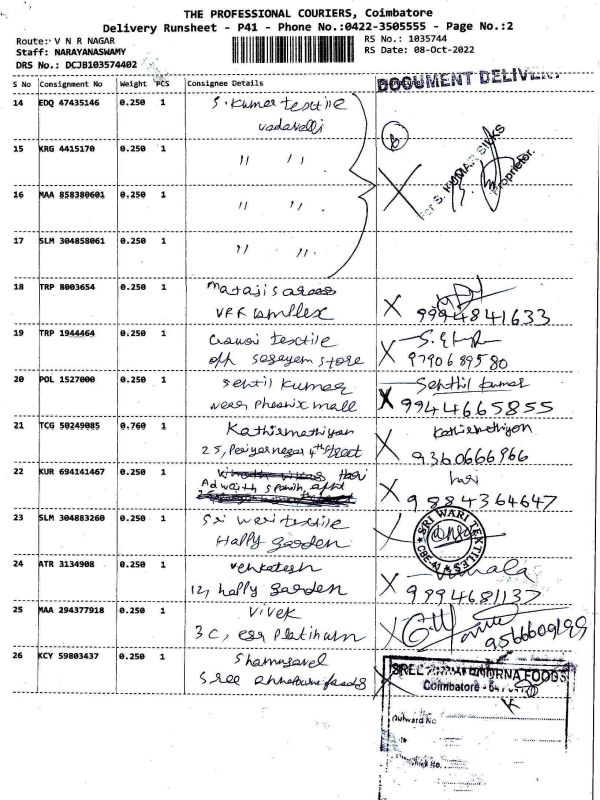 THE PROFESSIONAL COURIERS, Coimbatore
Delivery Runsheet - P41 - Phone No.:0422-3505555 - Page No.:2
Route: V N R NAGAR
RS No.: 1035744
Staff: NARAYANASWAMY
RS Date: 08-Oct-2022
DRS No.: DCJB103574402
DOCUMENT DELIVERY
S No Consignment No Weight PCS Consignee Details
14 EDQ 47435146 0.250 1 S. Kumar textile
vadavalli
15 KRG 4415170 0.250 1 " "
For S. KUMAR SILKS
Proprietor.
16 MAA 858380601 0.250 1 " "
17 SLM 304858061 0.250 1 " "
18 TRP 8003654 0.250 1 Mataji
X 9994841633
19 TRP 1944464 0.250 1 textile
off store X 9790689580
20 POL 1527000 0.250 1 Senthil Kumar Senthil Kumar
near Phoenix mall X 9944665855
21 TCG 50249085 0.760 1 Kathirmathiyan Kathirmathiyan
25, Periyar nagar 4th street X 9360666966
22 KUR 694141467 0.250 1 Hari hari
X 9884364647
23 SLM 304883260 0.250 1 Sri wari textile
Happy Garden X
SRI WARI TEXTILES
CBE-41
24 ATR 3134908 0.250 1 Venkatesh
12, happy Garden X 9994681137
25 MAA 294377918 0.250 1 Vivek
3C, Platinum X 9566609199
26 KCY 59803437 0.250 1
Sree annapurna foods X
SREE ANNAPOORNA FOODS
Coimbatore -
Inward No